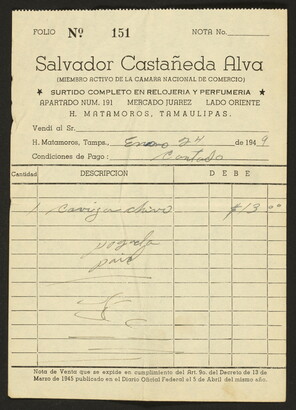 FOLIO Nº 151 NOTA No.
Salvador Castañeda Alva
(MIEMBRO ACTIVO DE LA CAMARA NACIONAL DE COMERCIO)
★ SURTIDO COMPLETO EN RELOJERIA Y PERFUMERIA ★
APARTADO NUM. 191 MERCADO JUAREZ LADO ORIENTE
H. MATAMOROS, TAMAULIPAS.
Vendí al Sr.
H. Matamoros, Tamps., Enero 24 de 1949
Condiciones de Pago: Contado
Cantidad DESCRIPCION DEBE
1 $13.00
Nota de Venta que se expide en cumplimiento del Art. 9o. del Decreto de 13 de
Marzo de 1945 publicado en el Diario Oficial Federal el 5 de Abril del mismo año.